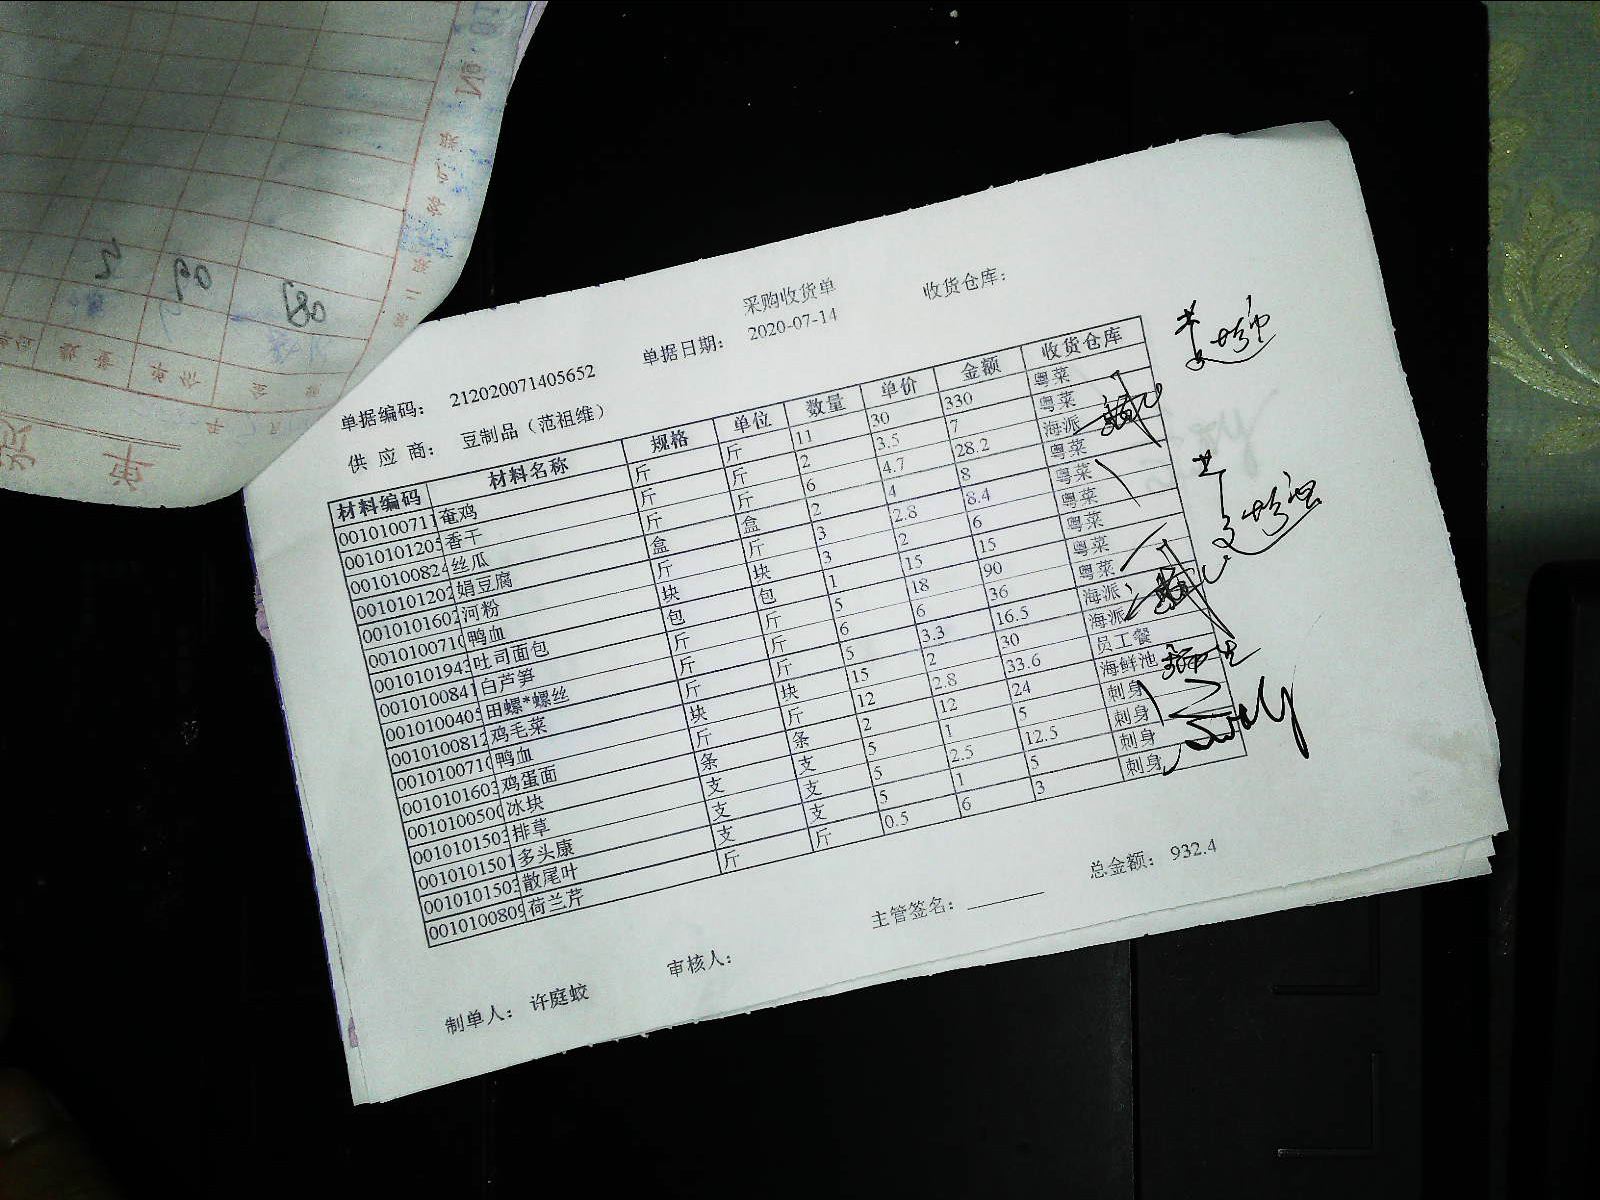 采购收货单
单据编码： 212020071405652 单据日期： 2020-07-14 收货仓库：
供 应 商： 豆制品（范祖维）
材料编码 材料名称 规格 单位 数量 单价 金额 收货仓库
0010100711 奄鸡 斤 斤 11 30 330 粤菜
001010120 香干 斤 斤 2 3.5 7 粤菜
001010082 丝瓜 斤 斤 6 4.7 28.2 海派
001010120 娟豆腐 盒 盒 2 4 8 粤菜
001010160 河粉 斤 斤 3 2.8 8.4 粤菜
001010071 鸭血 块 块 3 2 6 粤菜
001010194 吐司面包 包 包 1 15 15 粤菜
001010084 白芦笋 斤 斤 5 18 90 粤菜
001010040 田螺*螺丝 斤 斤 6 6 36 粤菜
001010081 鸡毛菜 斤 斤 5 3.3 16.5 海派
001010071 鸭血 块 块 15 2 30 海派
001010160 鸡蛋面 斤 斤 12 2.8 33.6 员工餐
001010050 冰块 条 条 2 12 24 海鲜池
001010150 排草 支 支 5 1 5 刺身
001010150 多头康 支 支 5 2.5 12.5 刺身
001010150 散尾叶 支 支 5 1 5 刺身
001010080 荷兰芹 斤 斤 0.5 6 3 刺身
制单人： 许庭蛟 审核人： 主管签名： 总金额： 932.4